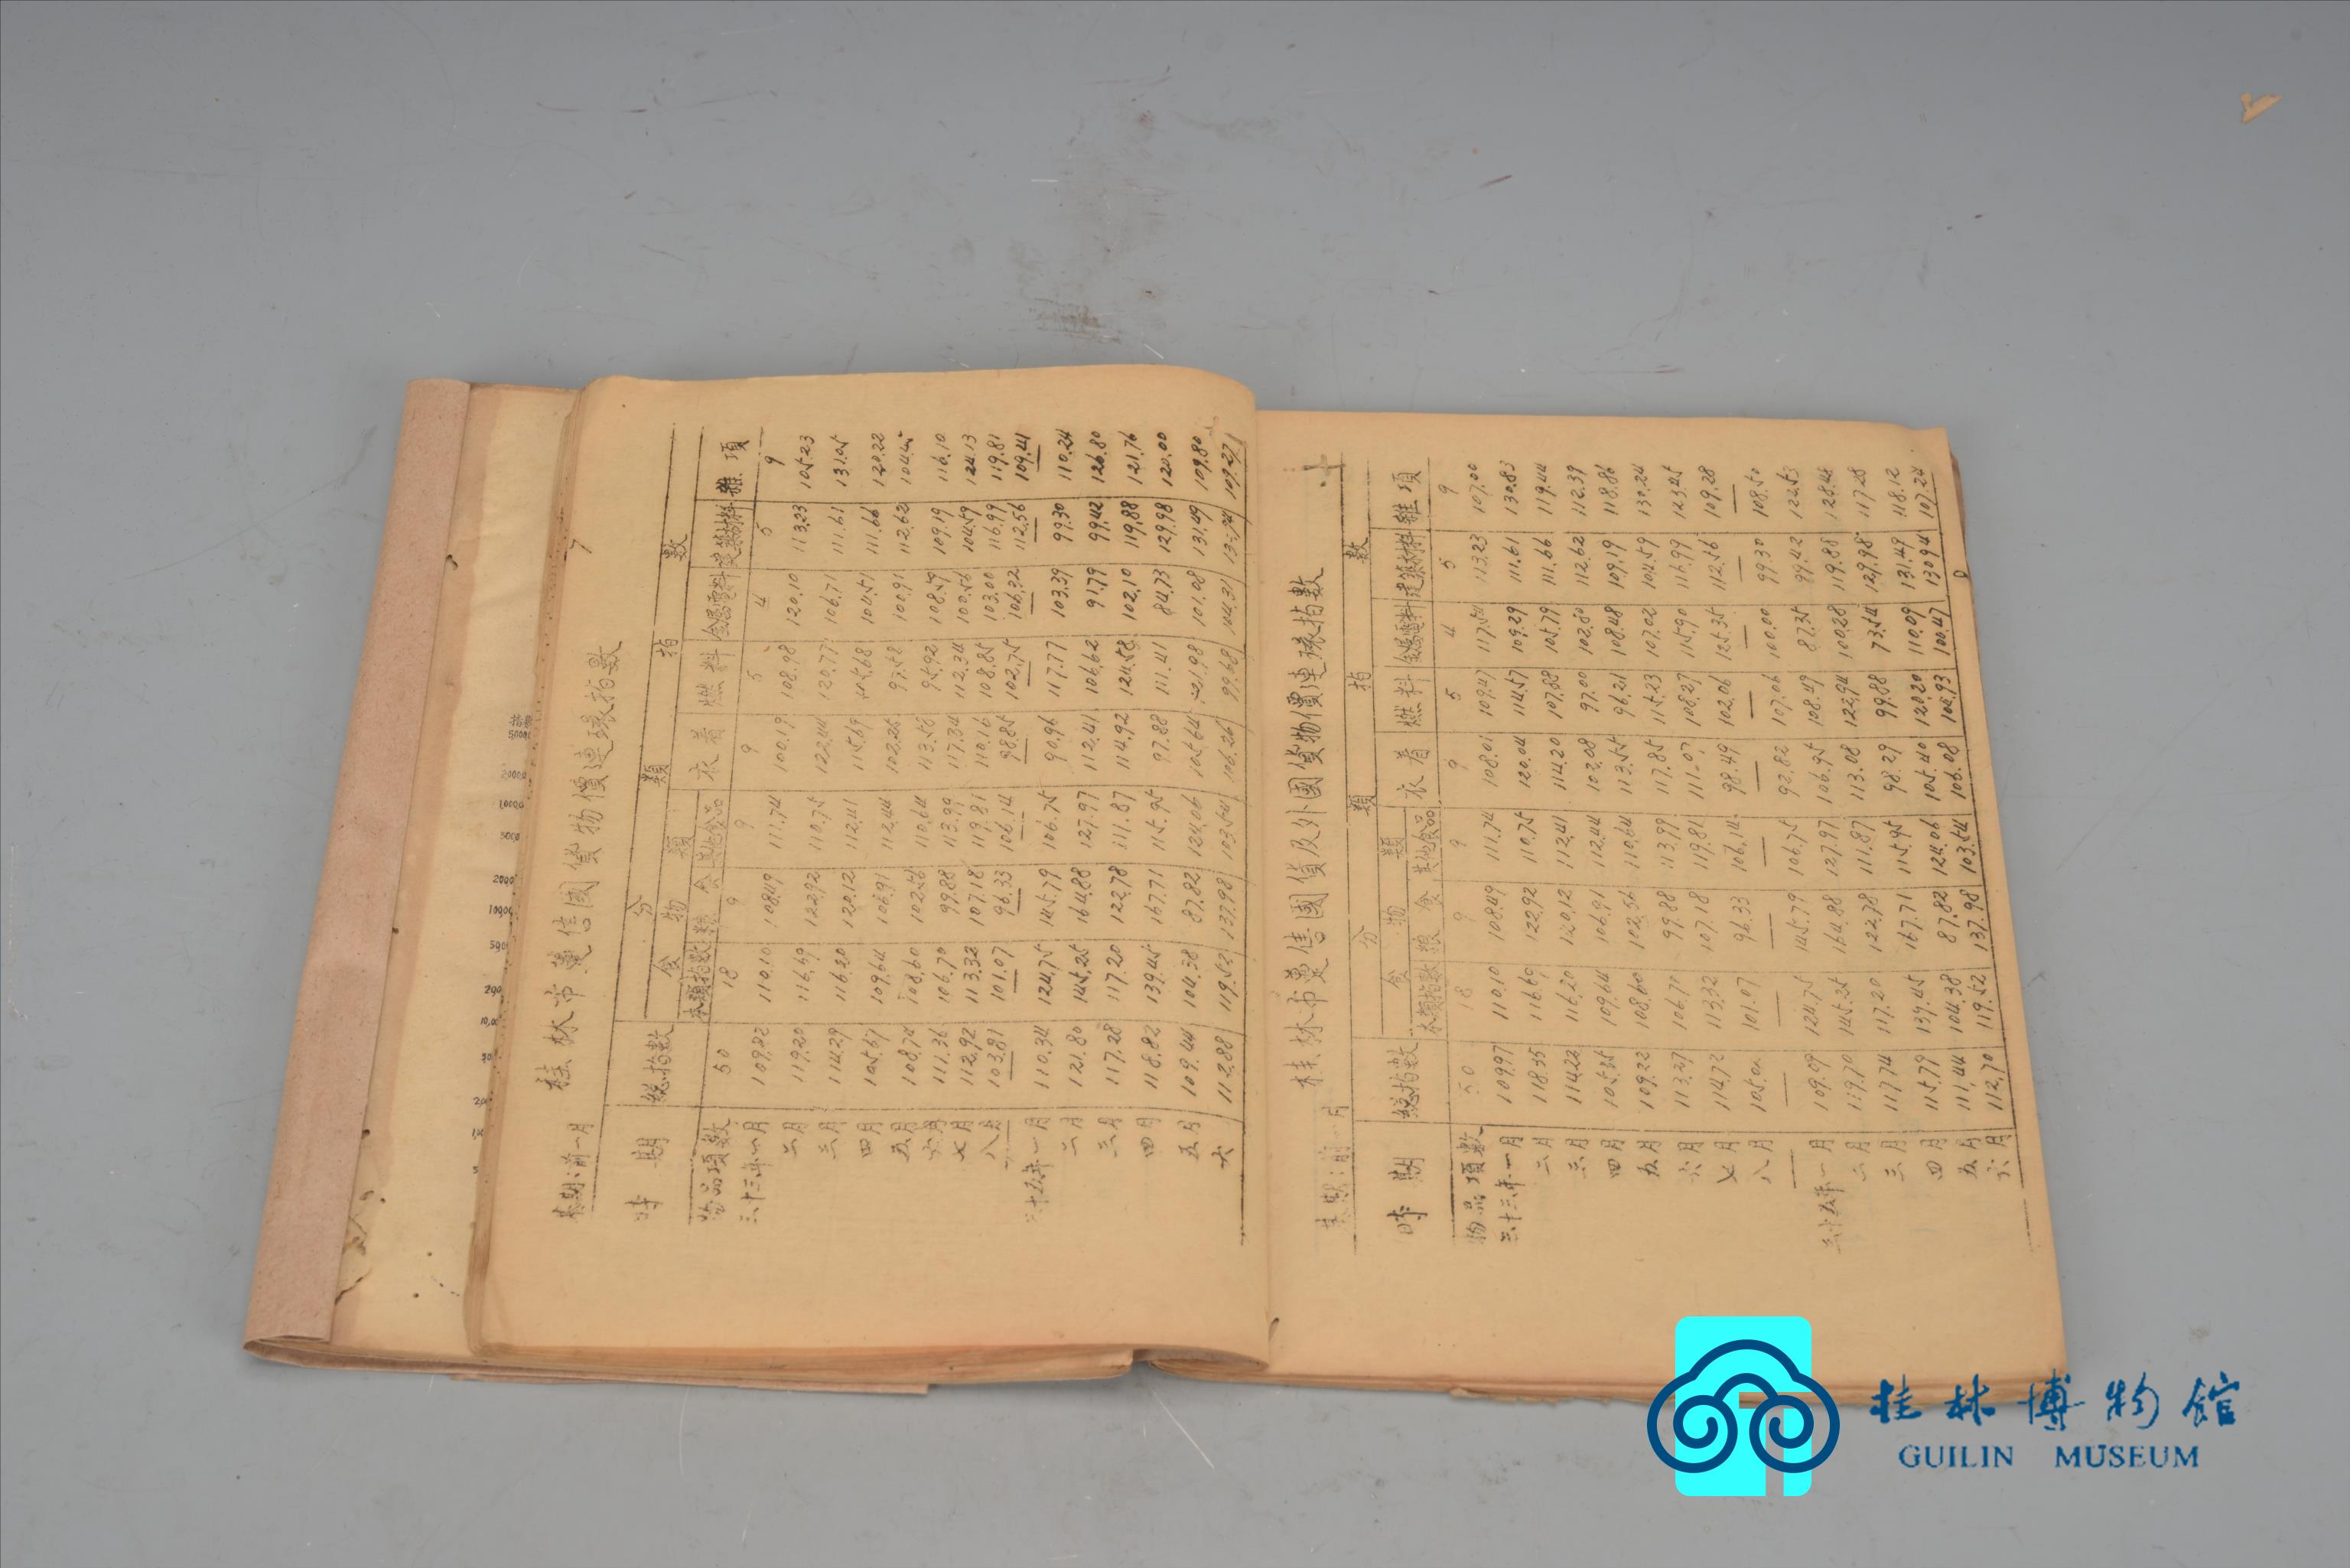 7
桂林市躉售國貨物價連環指數
基期:前一月
時期 總指數 分類指數
食物類 衣着 燃料 金屬電料 建築材料 雜項
本類指數 糧食 其他食品
物品項數 50 18 9 9 9 5 4 5 9
三十三年一月 109.82 110.10 108.49 111.74 100.19 108.98 120.10 113.23 105.23
二月 119.20 116.69 122.92 110.75 122.44 120.77 106.71 111.61 131.05
三月 114.29 116.20 120.12 112.41 115.69 105.68 104.51 111.66 120.22
四月 105.67 109.64 106.91 112.44 102.25 97.58 100.91 112.62
五月 108.74 108.60 102.56 110.64 113.58 95.92 108.59 109.19 116.10
六月 111.36 106.70 99.88 113.99 117.34 112.34 100.56 104.59 124.13
七月 112.92 113.32 107.18 119.81 110.16 108.85 103.00 116.99 119.81
八月 103.81 101.07 96.33 106.14 98.85 102.75 106.32 112.56 109.41
三十五年一月 110.34 124.75 145.79 106.75 90.96 117.77 103.39 99.30 110.24
二月 121.80 145.25 164.88 127.97 112.41 106.62 91.79 99.42 126.80
三月 117.28 117.20 122.78 111.87 114.92 124.58 102.10 119.88 121.76
四月 118.82 139.45 167.71 115.95 97.88 111.41 84.73 129.98 120.00
五月 109.44 104.38 87.82 124.06 105.64 121.98 101.08 131.49 109.80
六 112.88 119.52 137.98 103.54 106.26 99.68 104.31 109.27
桂林市躉售國貨及外國貨物價連環指數
基期:前一月
時期 總指數 分類指數
食物類 衣着 燃料 金屬電料 建築材料 雜項
本類指數 糧食 其他食品
物品項數 50 18 9 9 9 5 4 5 9
三十三年一月 109.97 110.10 108.49 111.74 108.01 109.47 117.54 113.23 107.00
二月 118.35 116.69 122.92 110.75 120.04 114.57 109.29 111.61 130.83
三月 114.22 116.20 120.12 112.41 114.20 107.88 105.79 111.66 119.44
四月 105.55 109.64 106.91 112.44 102.08 97.00 102.80 112.62 112.39
五月 109.22 108.60 102.56 110.64 113.55 96.21 108.48 109.19 118.86
六月 113.27 106.71 99.88 113.99 117.85 115.23 107.02 104.59 130.24
七月 114.72 113.32 107.18 119.81 111.07 108.27 115.90 116.99 123.45
八月 105.02 101.07 96.33 106.14 98.49 102.06 125.35 112.56 109.28
三十五年一月 109.09 124.75 145.79 106.75 92.82 107.06 100.00 99.30 108.50
二月 119.70 145.25 164.88 127.97 106.95 108.49 87.35 99.42 122.53
三月 117.74 117.20 122.78 111.87 113.08 122.94 100.28 119.88 128.44
四月 115.79 139.45 167.71 115.95 98.29 99.88 73.54 129.98 117.28
五月 111.44 104.38 87.82 124.06 105.40 120.20 110.09 131.49 118.12
六月 112.70 119.52 137.98 103.54 106.08 104.93 100.47 130.94 107.24
8
桂林博物館
GUILIN MUSEUM